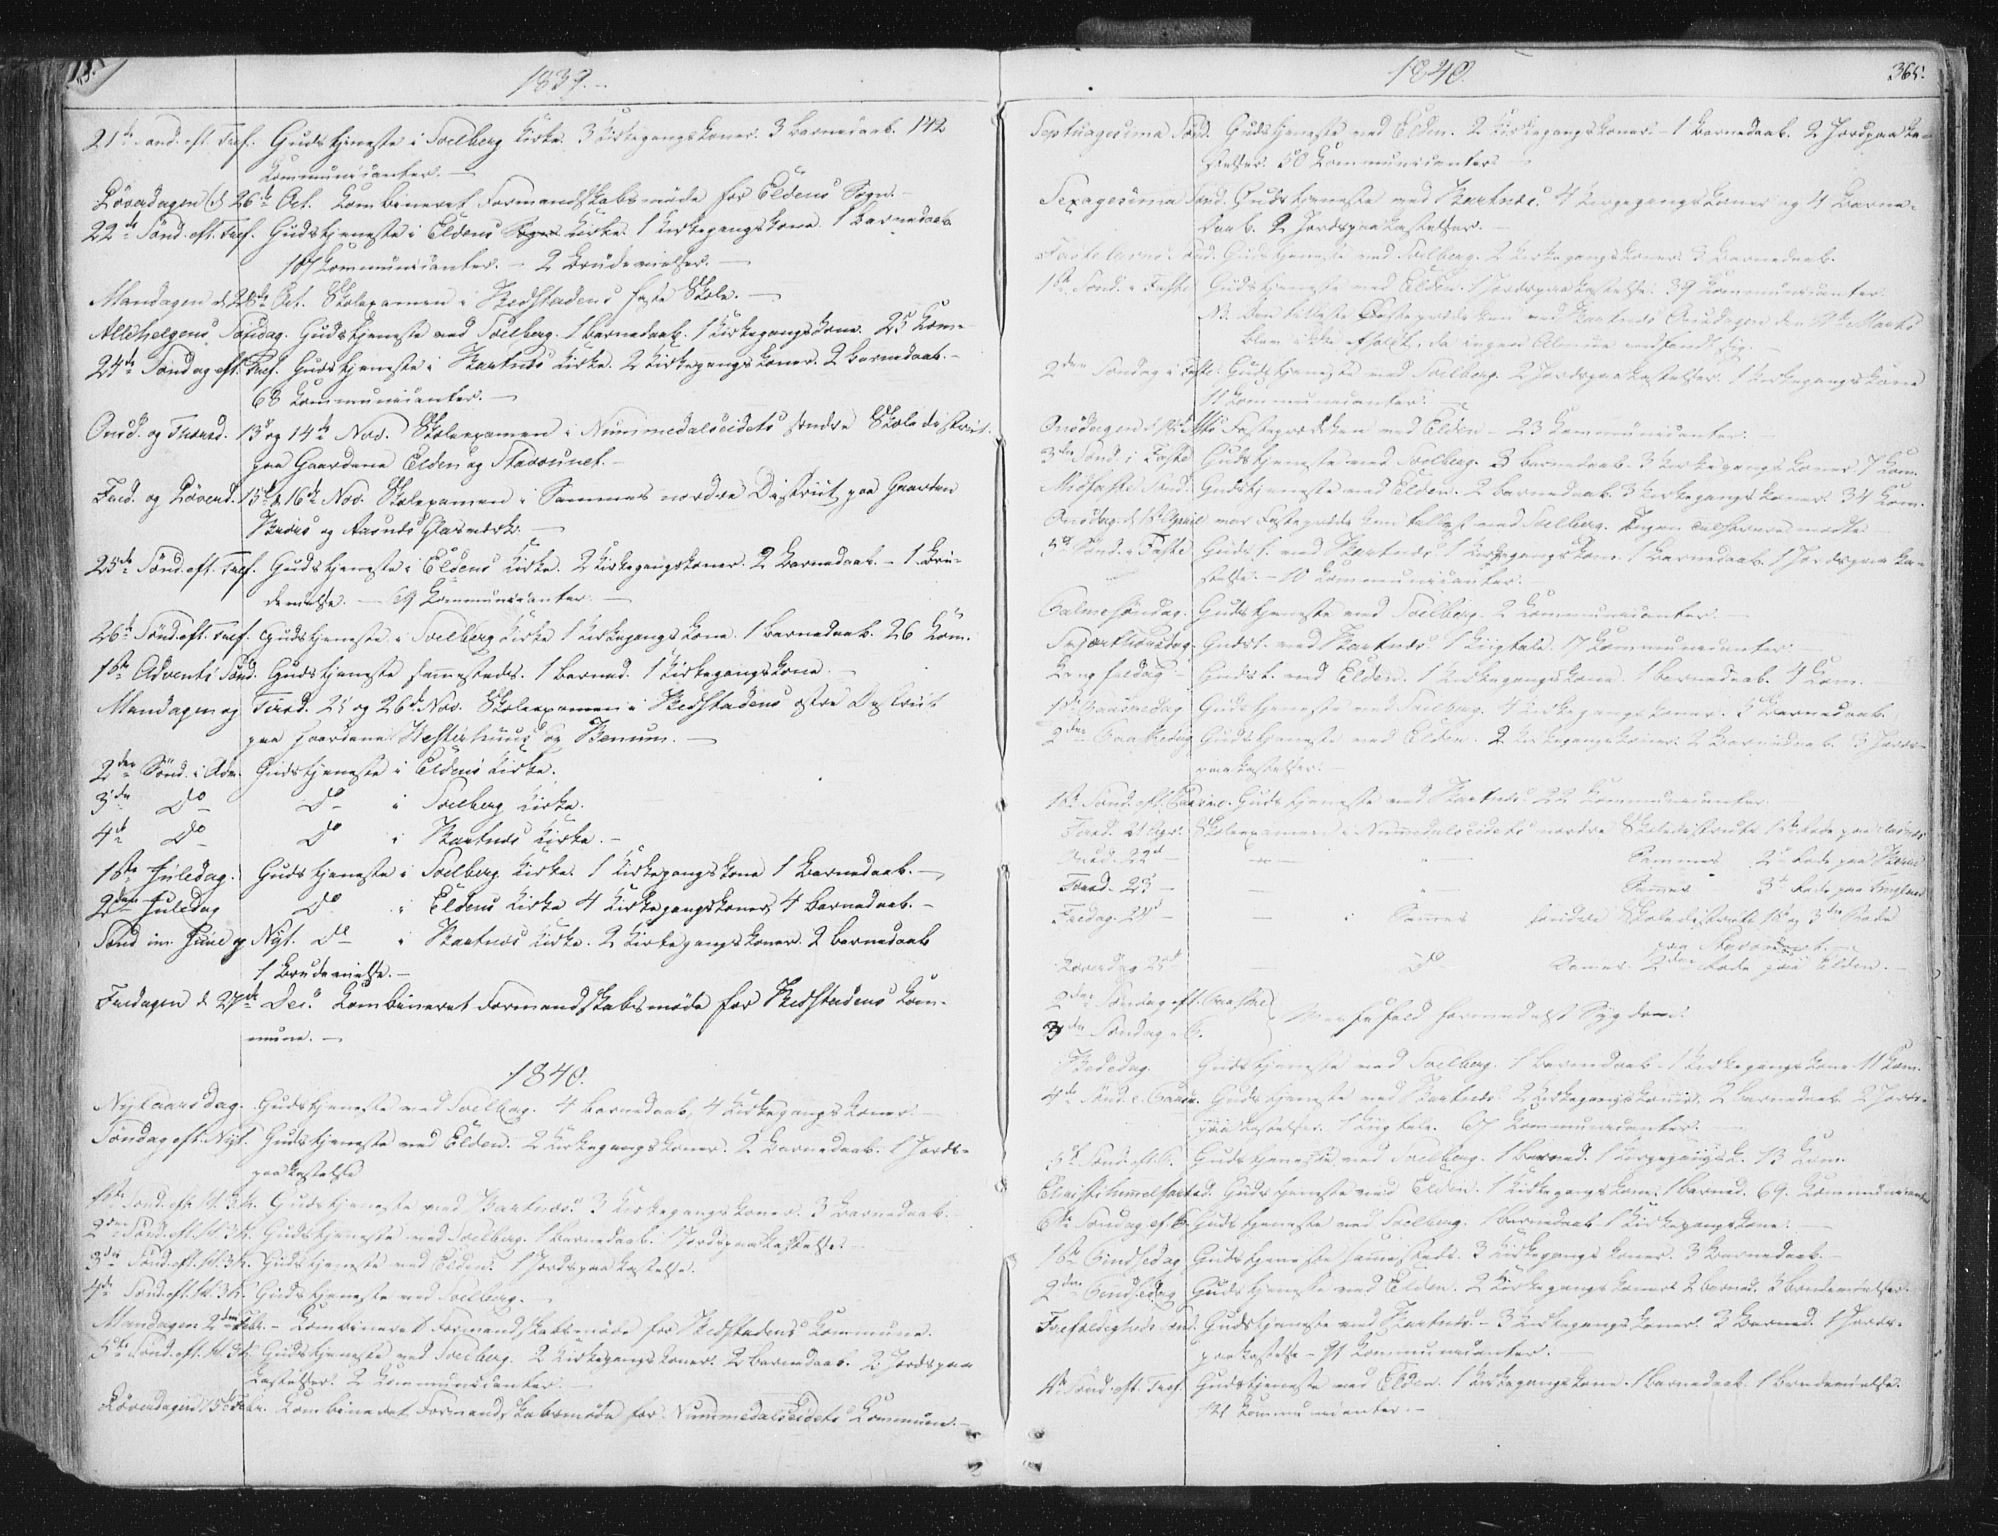 1839.
21de Sønd. eft. Tref. Gudstjeneste i Soelberg Kirke. 3 Kirkegangskoner. 3 Barnedaab. 142
Kommunicanter. —
Løverdagen d. 26de Oct. Kombineret Formandskabsmøde for Eldens Sogn. —
22de Sønd. eft. Tref. Gudstjeneste i Eldens Kirke. 1 Kirkegangskone. 1 Barnedaab.
Kommunicanter. — 2 Brudevielser. —
Mandagen d. 28de Oct. Skoleexamen i Kledstadens faste Skole. —
Allehelgens Søndag. Gudstjeneste ved Soelberg. 1 Barnedaab. 1 Kirkegangskone. 25 Kom.
24de Søndag eft. Tref. Gudstjeneste i Skartnes Kirke. 2 Kirkegangskoner. 2 Barnedaab. —
68 Kommunicanter. —
Onsd. og Thorsd. 13de og 14de Nov. Skoleexamen i Nummedalseidets søndre Skoledistrict.
paa Gaardene Elden og Stavrunet. —
Fred. og Løverd. 15de & 16de Nov. Skoleexamen i Sammes nordre District, paa Gaarden
og Aasnæs Glasværk. —
25de Sønd. eft. Tref. Gudstjeneste i Eldens Kirke. 2 Kirkegangskoner. 2 Barnedaab. — 1 Bru-
devielse. — 69 Kommunicanter. —
26de Sønd. eft. Tref. Gudstjeneste i Soelberg Kirke 1 Kirkegangskone. 1 Barnedaab. 26 Kom.
1ste Advents Sønd. Gudstjeneste sammesteds. 1 Barned. 1 Kirkegangskone. —
Mandagen og Tirsd. 25 og 26de Nov. Skoleexamen i Kledstadens østre District
paa Gaardene og —
2den Sønd. i Adv. Gudstjeneste i Eldens Kirke.
3die Do Do i Soelberg Kirke.
4de Do Do i Skartnes Kirke. —
1ste Juledag. Gudstjeneste i Soelberg Kirke. 1 Kirkegangskone 1 Barnedaab. —
2den Juledag Do i Eldens Kirke 4 Kirkegangskoner, 4 Barnedaab. —
Sønd. im. Juul og Nyt. Do i Skartnes Kirke. 2 Kirkegangskoner. 2 Barnedaab
1 Brudevielse. —
Fredagen d. 27de Decr. Kombineret Formandskabsmøde for Kledstadens Kom-
mune. —
1840.
Nytaarsdag. Gudstjeneste ved Soelberg. 4 Barnedaab, 4 Kirkegangskoner. —
Søndag eft. Nyt. Gudstjeneste ved Elden. 2 Kirkegangskoner. 2 Barnedaab. 1 Jords-
paakastelse
1ste Sønd. eft. H. 3 K. Gudstjeneste ved Skartnes. 3 Kirkegangskoner. 3 Barnedaab.
2den Sønd. eft. H. 3 K. Gudstjeneste ved Soelberg. 1 Barnedaab. 1 Jordspaakastelse. —
3die Sønd. eft. H. 3 K. Gudstjeneste ved Elden. 1 Jordspaakastelse.
4de Sønd. eft. H. 3 K. Gudstjeneste ved Soelberg. —
Mandagen 2den Febr. — Kombineret Formandskabsmøde for Kledstadens Kommune.
5te Sønd. eft. H. 3 K. Gudstjeneste ved Soelberg. 2 Kirkegangskoner. 2 Barnedaab. 2 Jordspaa
kastelser. 2 Kommunicanter. —
Løverdagen 15de Febr. Kombineret Formandskabsmøde for Nummedalseidets Kommune. —
1840.
365.
Septuagesima Sønd. Gudstjeneste ved Elden. 2 Kirkegangskoner. — 1 Barnedaab. 2 Jordpaaka-
stelser. 50 Kommunicanter. —
Sexagesima Sønd. Gudstjeneste ved Skartnes. 4 Kirkegangskoner og 4 Barne-
daab. 2 Jordspaakastelser. —
Fastelavns Sønd. Gudstjeneste ved Soelberg. 2 Kirkegangskoner. 3 Barnedaab.
1ste Sønd. i Faste Gudstjeneste ved Elden. 1 Jordspaakastelse. 39 Kommunicanter.
NB. Den Fasteprædiken ved Skartnes Onsdagen den Marts
blev ikke afholdt, da ingen Almue indfandt sig. —
2den Søndag i Faste. Gudstjeneste ved Soelberg. 2 Jordspaakastelser. 1 Kirkegangskone
11 Kommunicanter. —
Onsdagen Fasteprædiken ved Elden — 23 Kommunicanter. —
3die Sønd. i Faste Gudstjeneste ved Soelberg. 3 Barnedaab. 3 Kirkegangskoner 7 Kom.
Midfaste Sønd. Gudstjeneste ved Elden. 2 Barnedaab. 3 Kirkegangskoner. 34 Kom.
Onsdag. d. 1ste April var Fasteprædiken ved Soelberg. Ingen mødte
5te Sønd. i Faste Gudst. ved Skartnes. 1 Kirkegangskone. 1 Barnedaab. 1 Jordspaaka-
stelse. — 10 Kommunicanter. —
Palmesøndag. Gudstjeneste ved Soelberg. 2 Kommunicanter. —
Skjærthorsdag. Gudst. ved Skartnes. 1 Liigtale. 17 Kommunicanter. —
Langfredag — Gudst. ved Elden. 1 Kirkegangskone. 1 Barnedaab. 4 Kom. —
1ste Paaskedag Gudstjeneste ved Soelberg. 4 Kirkegangskoner. 5 Barnedaab.
2den Paaskedag Gudstjeneste ved Elden. 2 Kirkegangskoner. 2 Barnedaab. 3 Jords-
paakastelser. —
1ste Sønd. eft. Paaske. Gudstjeneste ved Skartnes. 22 Kommunicanter
Tirsd. 21 Apr. Skoleexamen i Nummedalseidets nordre Skoledistricts 1ste Rode paa
Onsd. 22d — — — Sammes 2den Rode paa
Torsd. 23 — — — Sammes 3die Rode paa
Fredag. 24de — i Sammes søndre Skoledistricts 1ste og 3die Rode
paa Stavrunet. —
Løverdag 25de — Do Sammes 2den Rode paa Elden. —
2den Søndag eft. Paaske
3die Søndag e. P. Messefald formedelst Sygdom.
Bededag. Gudstjeneste ved Soelberg. 1 Barnedaab. 1 Kirkegangskone 11 Kom.
4de Sønd. e. Paaske. Gudstjeneste ved Skartnes. 2 Kirkegangskoner. 2 Barnedaab. 2 Jords-
paakastelser. 1 Liigtale. 67 Kommunicanter. —
5te Sønd. eft. P. Gudstjeneste ved Soelberg. 1 Barned. 1 Kirkegangsk. 13 Kom.
Christi himmelfartsd. Gudstjeneste ved Elden. 1 Kirkegangskone. 1 Barned. 69. Kommunicanter
6te Søndag ef. P. Gudstjeneste ved Soelberg. 1 Barnedaab 1 Kirkegangskone. —
1ste Pindsedag Gudstjeneste sammesteds. 3 Kirkegangskoner. 3 Barnedaab. —
2den Pindsedag Gudstjeneste ved Elden. 2 Kirkegangskoner 2 Barned. 3 Brudevielser.
Trefoldigheds Sønd. Gudstjeneste ved Skartnes. — 3 Kirkegangskoner. 3 Barned. 1 Jords-
paakastelse — 91 Kommunicanter. —
Sønd. eft. Tref. Gudstjeneste ved Elden. 1 Kirkegangskone. 1 Barnedaab. 1 Brudevielse.
121 Kommunicanter. —